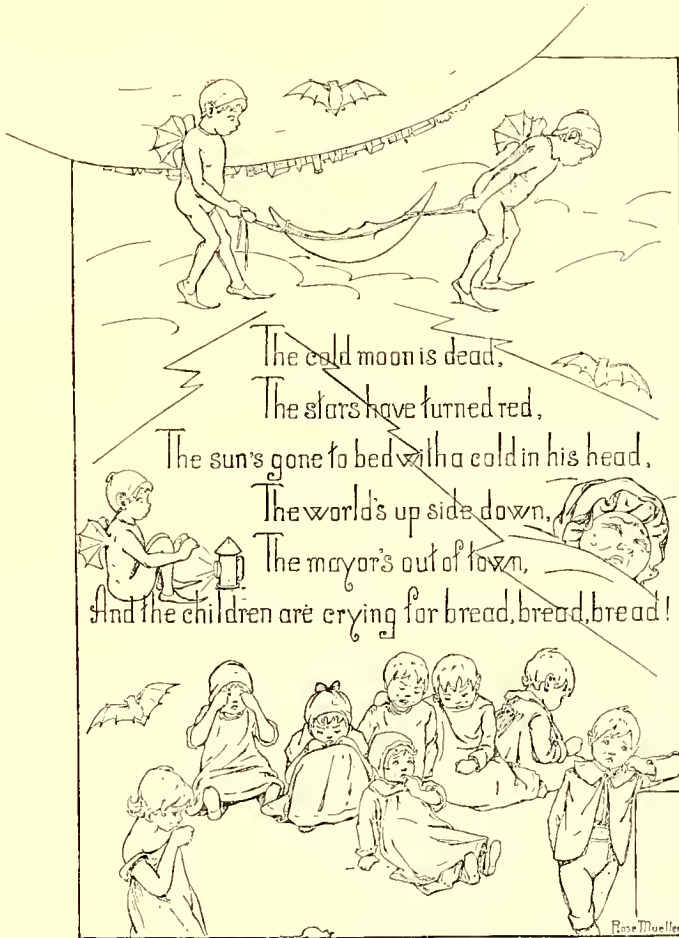 The cold moon is dead,
The stars have turned red,
The sun's gone to bed with a cold in his head,
The world's up side down,
The mayor's out of town,
And the children are crying for bread, bread, bread!
Rose Mueller